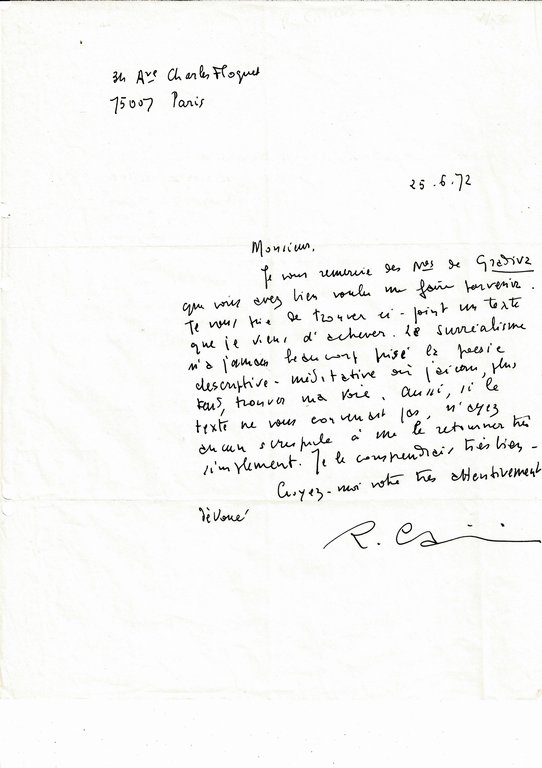 34 Ave Charles Floquet
75007 Paris
25.6.72
Monsieur,
Je vous remercie des Nos de Gradiva
que vous avez bien voulu me faire parvenir.
Je vous prie de trouver ci-joint un texte
que je viens d'achever. Le surréalisme
n'a jamais beaucoup prisé la poésie
descriptive-méditative où j'ai cru, plus
tard, trouver ma voie. Aussi, si le
texte ne vous convenait pas, n'ayez
aucun scrupule à me le retourner très
simplement. Je le comprendrais très bien.
Croyez-moi votre très attentivement
dévoué
R. C